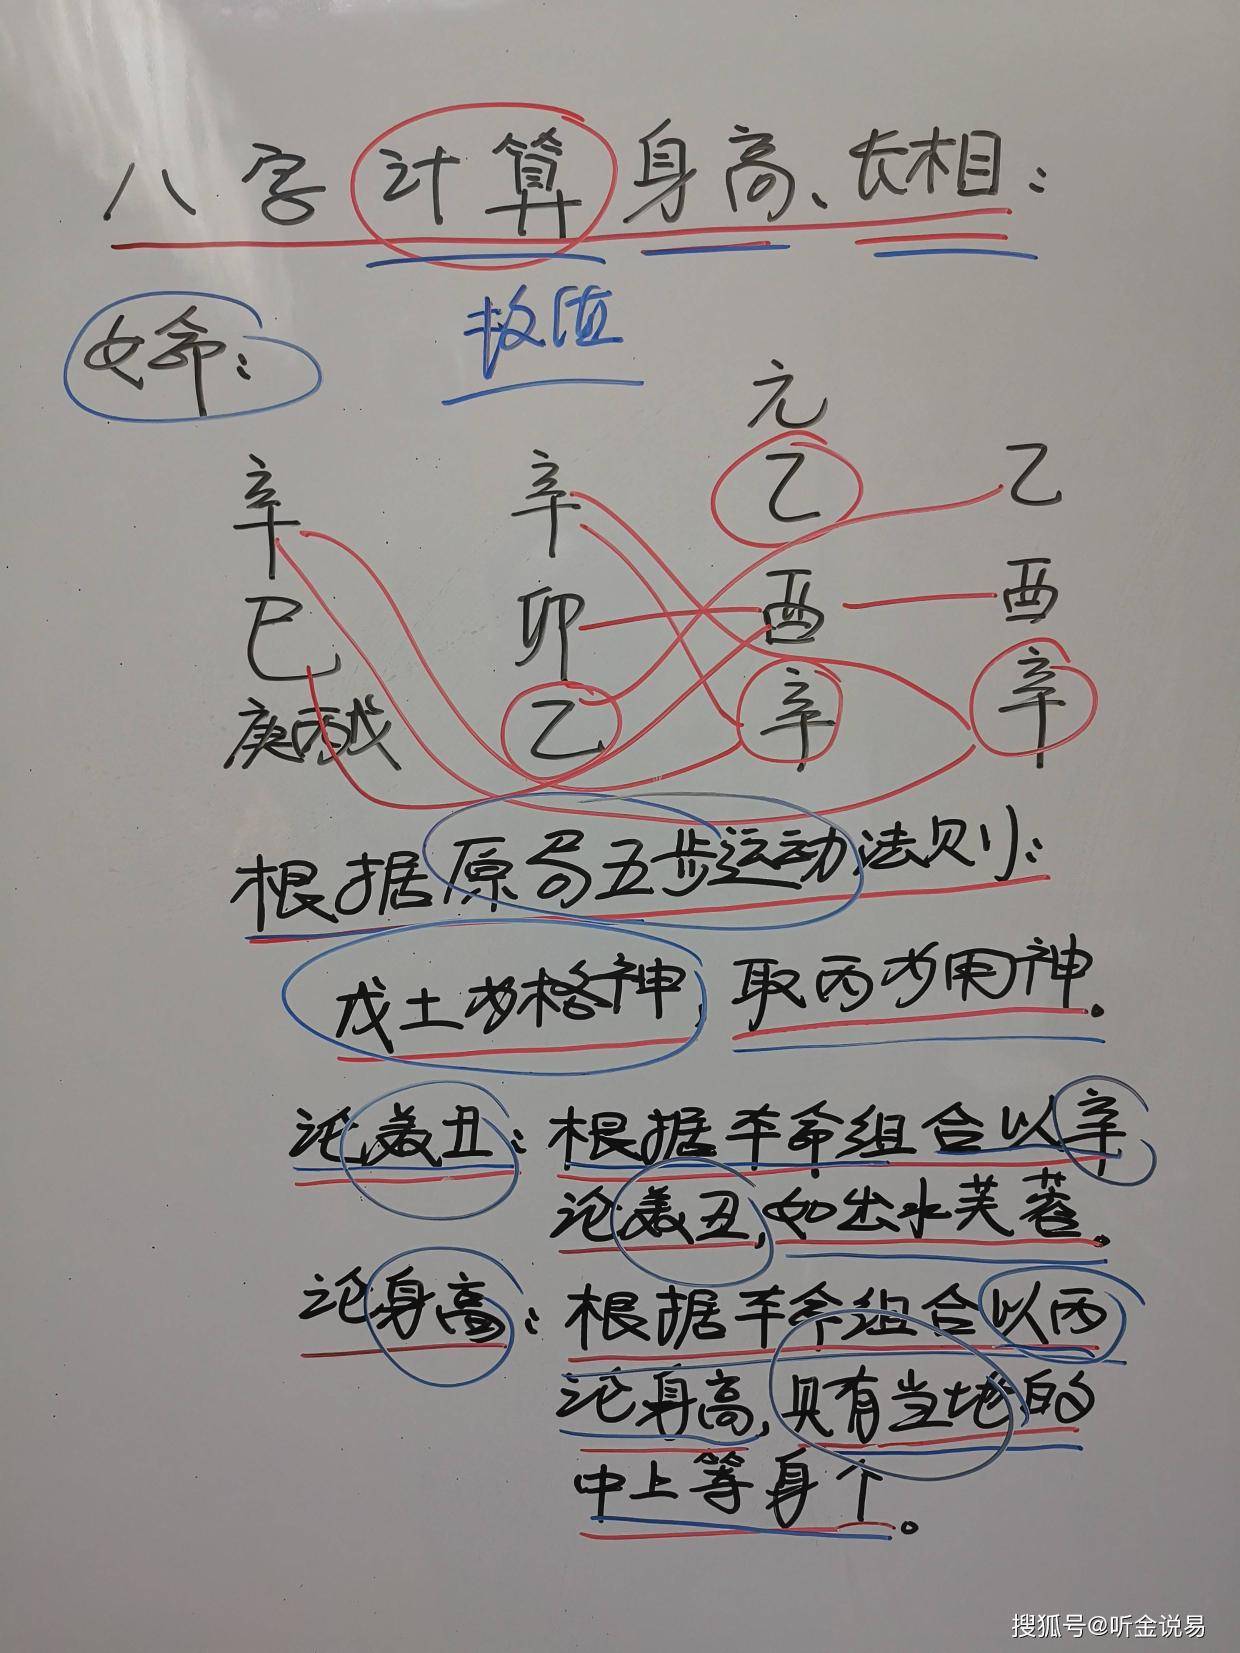 八字计算身高、长相:
女命:
数值
元
辛 辛 乙 乙
巳 卯 酉 酉
庚丙戊 乙 辛 辛
根据原局五步运动法则:
戊土为格神,取丙为用神.
论美丑:根据本命组合以辛
论美丑,如出水芙蓉.
论身高:根据本命组合以丙
论身高,具有当地的
中上等身个。
搜狐号@听金说易